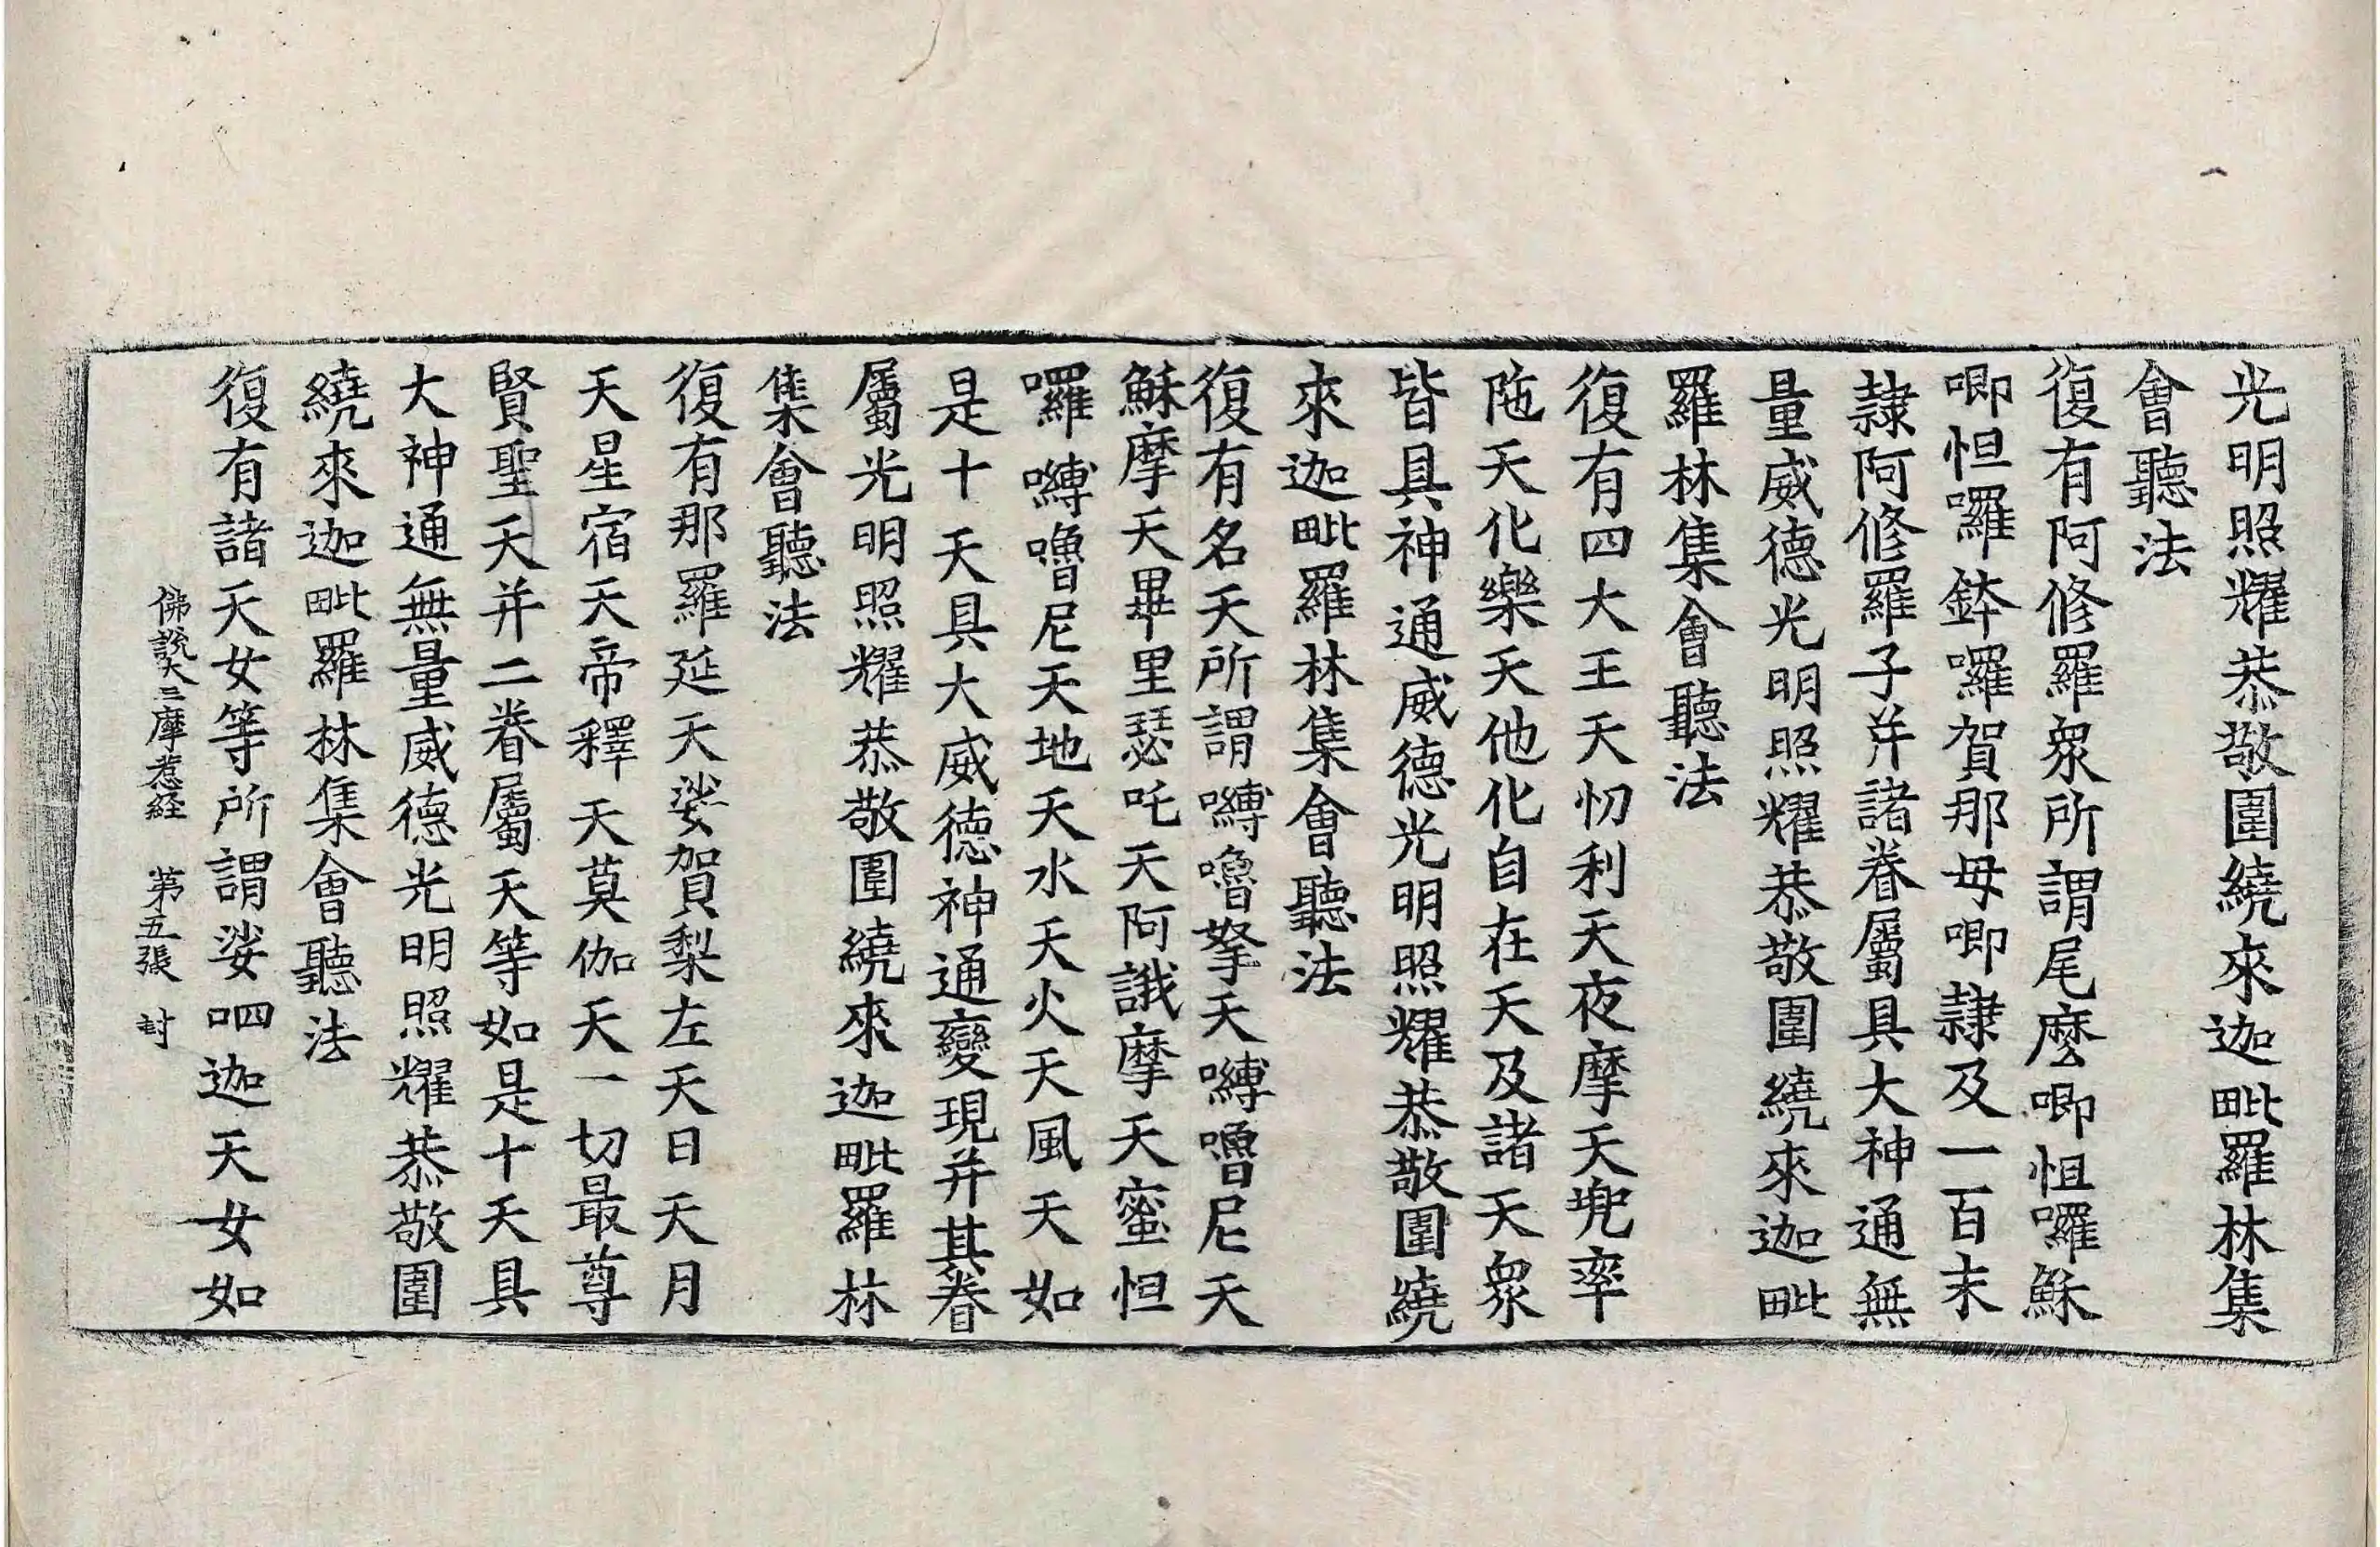 光明照耀恭敬圍繞來迦毗羅林集
會聽法
復有阿修羅衆所謂尾麽唧怛囉穌
唧怛囉鉢囉賀那母唧隷及一百末
隷阿修羅子并諸眷屬具大神通無
量威德光明照耀恭敬圍繞來迦毗
羅林集會聽法
復有四大王天忉利天夜摩天兜率
陁天化樂天他化自在天及諸天衆
皆具神通威德光明照耀恭敬圍繞
來迦毗羅林集會聽法
復有名天所謂嚩嚕拏天嚩嚕尼天
穌摩天畢里瑟吒天阿誐摩天蜜怛
囉嚩嚕尼天地天水天火天風天如
是十天具大威德神通變現并其眷
屬光明照耀恭敬圍繞來迦毗羅林
集會聽法
復有那羅延天娑賀梨左天日天月
天星宿天帝釋天莫伽天一切最尊
賢聖天并二眷屬天等如是十天具
大神通無量威德光明照耀恭敬圍
繞來迦毗羅林集會聽法
復有諸天女等所謂娑呬迦天女如
佛說大三摩惹経 第五張 封